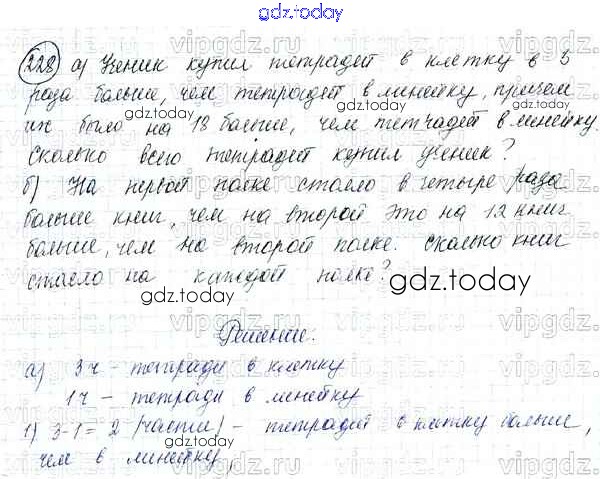 gdz.today
228 а) Ученик купил тетрадей в клетку в 3
раза больше, чем тетрадей в линейку, причем
их было на 18 больше, чем тетрадей в линейку.
Сколько всего тетрадей купил ученик?
б) На первой полке стояло в четыре раза
больше книг, чем на второй это на 12 книг
больше, чем на второй полке. Сколько книг
стояло на каждой полке?
gdz.today
Решение:
а) 3ч - тетради в клетку
1ч - тетради в линейку
1) 3-1=2 (части) - тетрадей в клетку больше,
чем в линейку